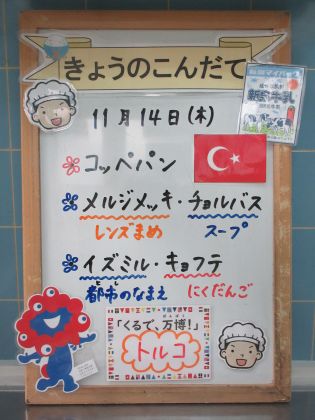 きょうのこんだて
11月14日(木)
コッペパン
メルジメッキ・チョルバス
レンズまめ スープ
イズミル・キョフテ
都市のなまえ にくだんご
「くるで、万博!」
トルコ